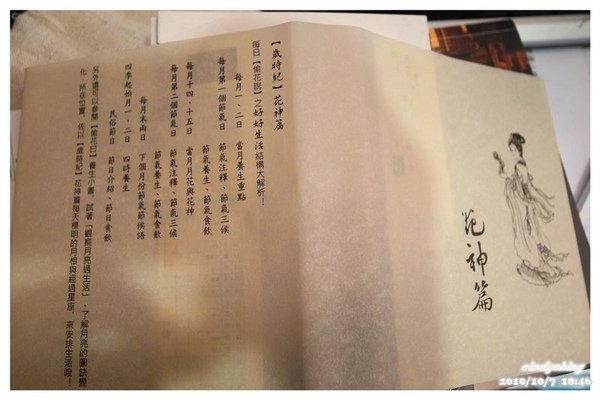 【歲時紀】花神篇
每日【偷花説】之好好生活結構大解析！
每月一、二日　當月養生重點
每月第一個節氣日　節氣注釋、節氣三候
節氣養生、節氣食飲
每月十四、十五日　當月月花與花神
每月第二個節氣日　節氣注釋、節氣三候
節氣養生、節氣食飲
每月末兩日　下個月份節氣節候語
四季起始月一、二日　四時養生
民俗節日　節日介紹、節日食飲
另外還可以參閱【偷花曰】養生小書，試著「觀察月亮過生活」，了解月亮的圓缺變
化、所在位置，佐以【歲時紀】花神篇每天標明的月相與經過星座，來安排生活哦！
花神篇
cindyching
2010/10/7 18:46